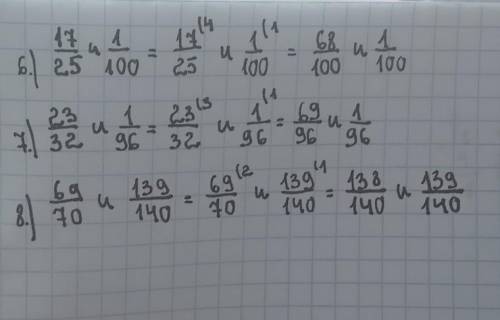 6.) 17/25 и 1/100 = 17(4/25 и 1(1/100 = 68/100 и 1/100
7.) 23/32 и 1/96 = 23(3/32 и 1(1/96 = 69/96 и 1/96
8.) 69/70 и 139/140 = 69(2/70 и 139(1/140 = 138/140 и 139/140